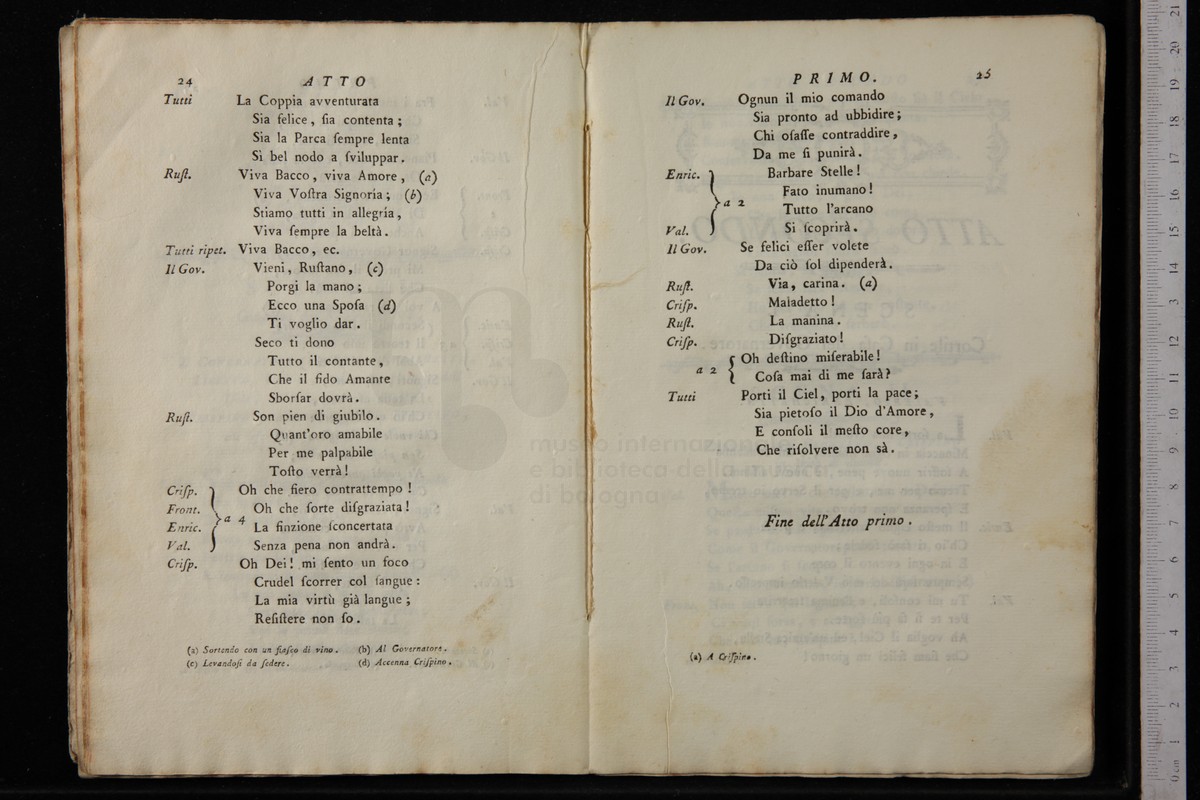 24 ATTO
Tutti La Coppia avventurata
Sia felice, ſia contenta;
Sia la Parca ſempre lenta
Sì bel nodo a ſviluppar.
Ruſt. Viva Bacco, viva Amore, (a)
Viva Voſtra Signoría; (b)
Stiamo tutti in allegría,
Viva ſempre la beltà.
Tutti ripet. Viva Bacco, ec.
Il Gov. Vieni, Ruſtano, (c)
Porgi la mano;
Ecco una Spoſa (d)
Ti voglio dar.
Seco ti dono
Tutto il contante,
Che il fido Amante
Sborſar dovrà.
Ruſt. Son pien di giubilo.
Quant'oro amabile
Per me palpabile
Toſto verrà!
Criſp. Oh che fiero contrattempo!
Front. Oh che ſorte diſgraziata!
a 4
Enric. La finzione ſconcertata
Val. Senza pena non andrà.
Criſp. Oh Dei! mi ſento un foco
Crudel ſcorrer col ſangue:
La mia virtù già langue;
Reſiſtere non ſo.
(a) Sortendo con un fiaſco di vino. (b) Al Governatore.
(c) Levandoſi da ſedere. (d) Accenna Criſpino.
PRIMO. 25
Il Gov. Ognun il mio comando
Sia pronto ad ubbidire;
Chi oſaſſe contraddire,
Da me ſi punirà.
Enric. Barbare Stelle!
Fato inumano!
a 2 Tutto l'arcano
Val. Si ſcoprirà.
Il Gov. Se felici eſſer volete
Da ciò ſol dipenderà.
Ruſt. Via, carina. (a)
Criſp. Maladetto!
Ruſt. La manina.
Criſp. Diſgraziato!
a 2 Oh deſtino miſerabile!
Coſa mai di me ſarà?
Tutti Porti il Ciel, porti la pace;
Sia pietoſo il Dio d'Amore,
E conſoli il meſto core,
Che riſolvere non sà.
Fine dell'Atto primo.
(a) A Criſpino.
museo internazionale
e biblioteca della musica
di bologna